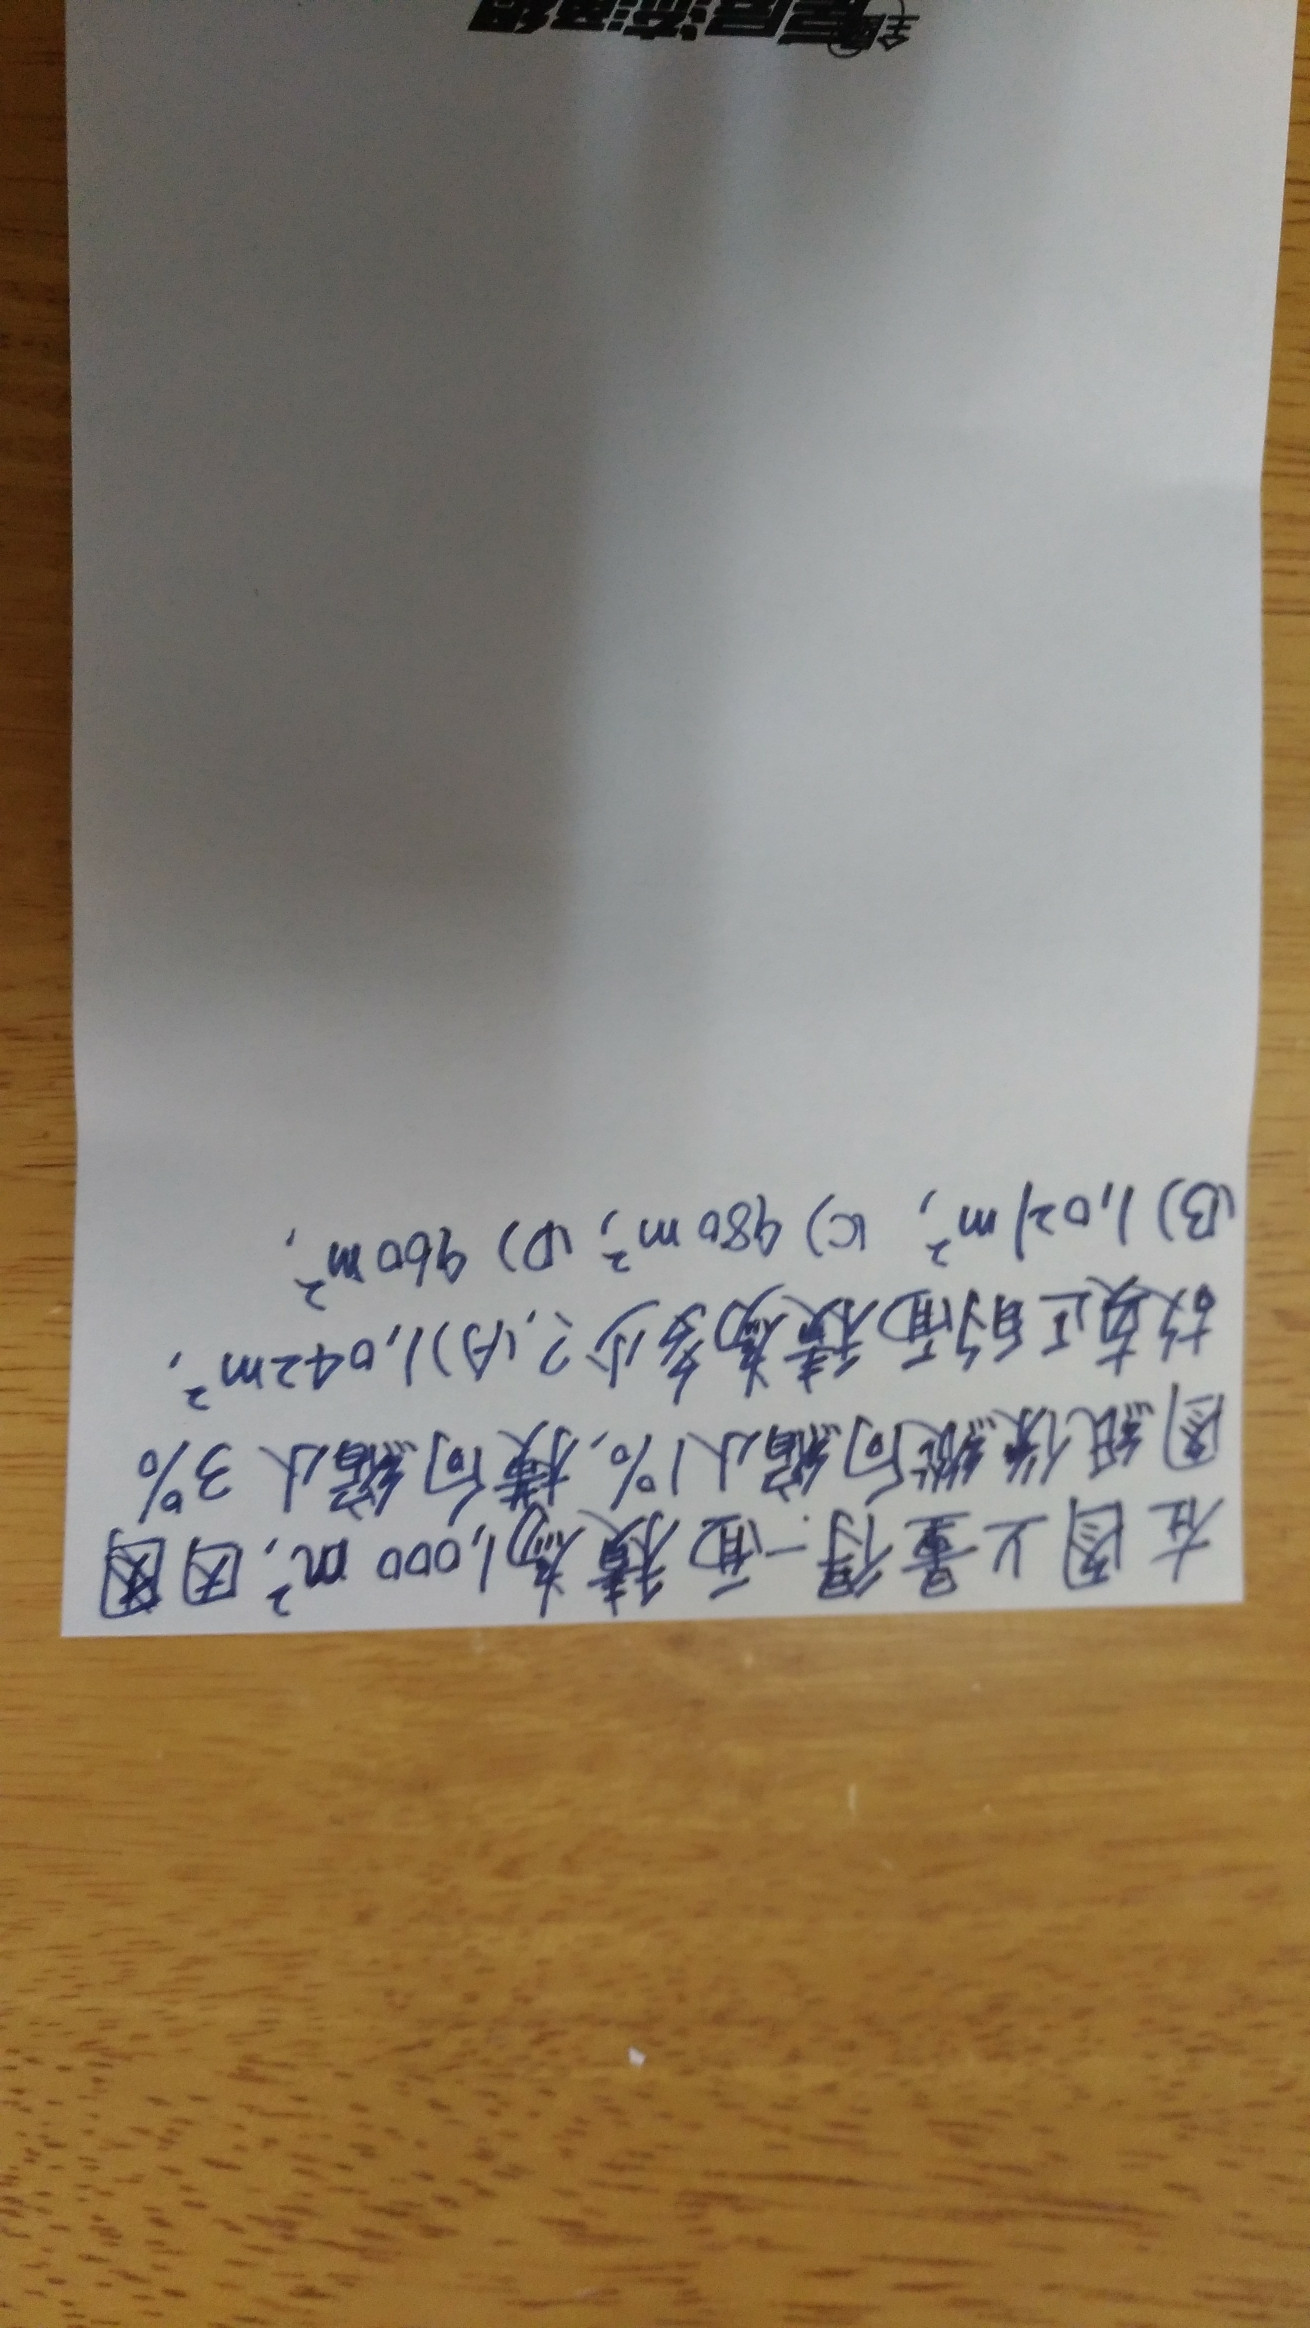 在圖上量得一面積為1,000 m²,因圖
圖紙係縱向縮小1%,橫向縮小3%
故真正的面積為多少?,(A)1,042m²,
(B)1,021m², (C)980m², (D)960m²,